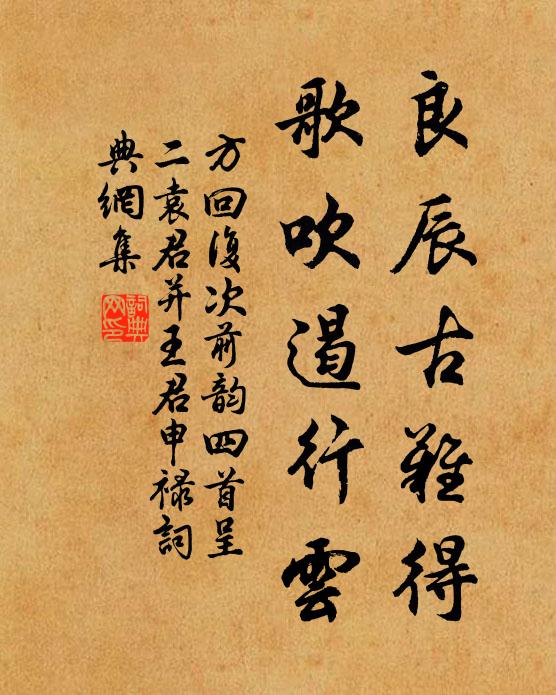 良辰古難得
歌吹遏行雲
方回復次前韵四首呈
二袁君并王君申禄詞
典網集
詞典
网印